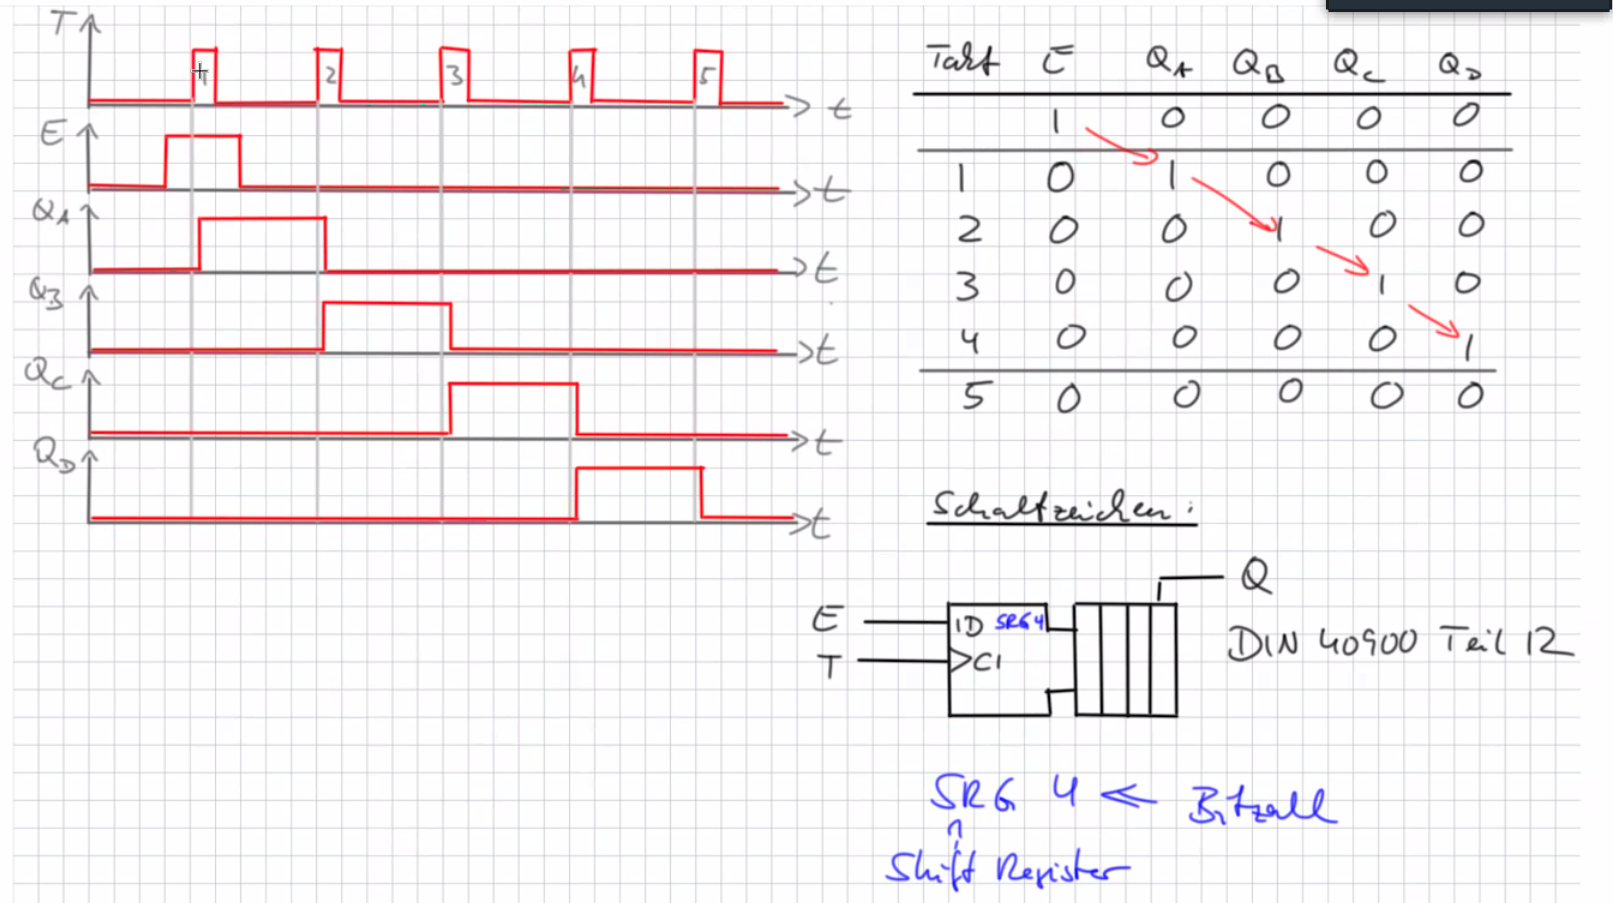 T
1 2 3 4 5
t
E
t
QA
t
QB
t
QC
t
QD
t
Takt E QA QB QC QD
1 0 0 0 0
1 0 1 0 0 0
2 0 0 1 0 0
3 0 0 0 1 0
4 0 0 0 0 1
5 0 0 0 0 0
Schaltzeichen:
Q
E 1D SRG 4
T C1
DIN 40900 Teil 12
SRG 4 ← Bitzahl
↑
Shift Register